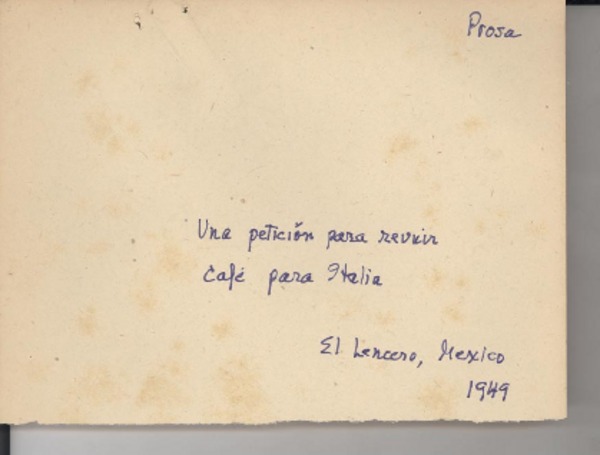 Prosa
Una petición para reunir
Café para Italia
El Lencero, Mexico
1949